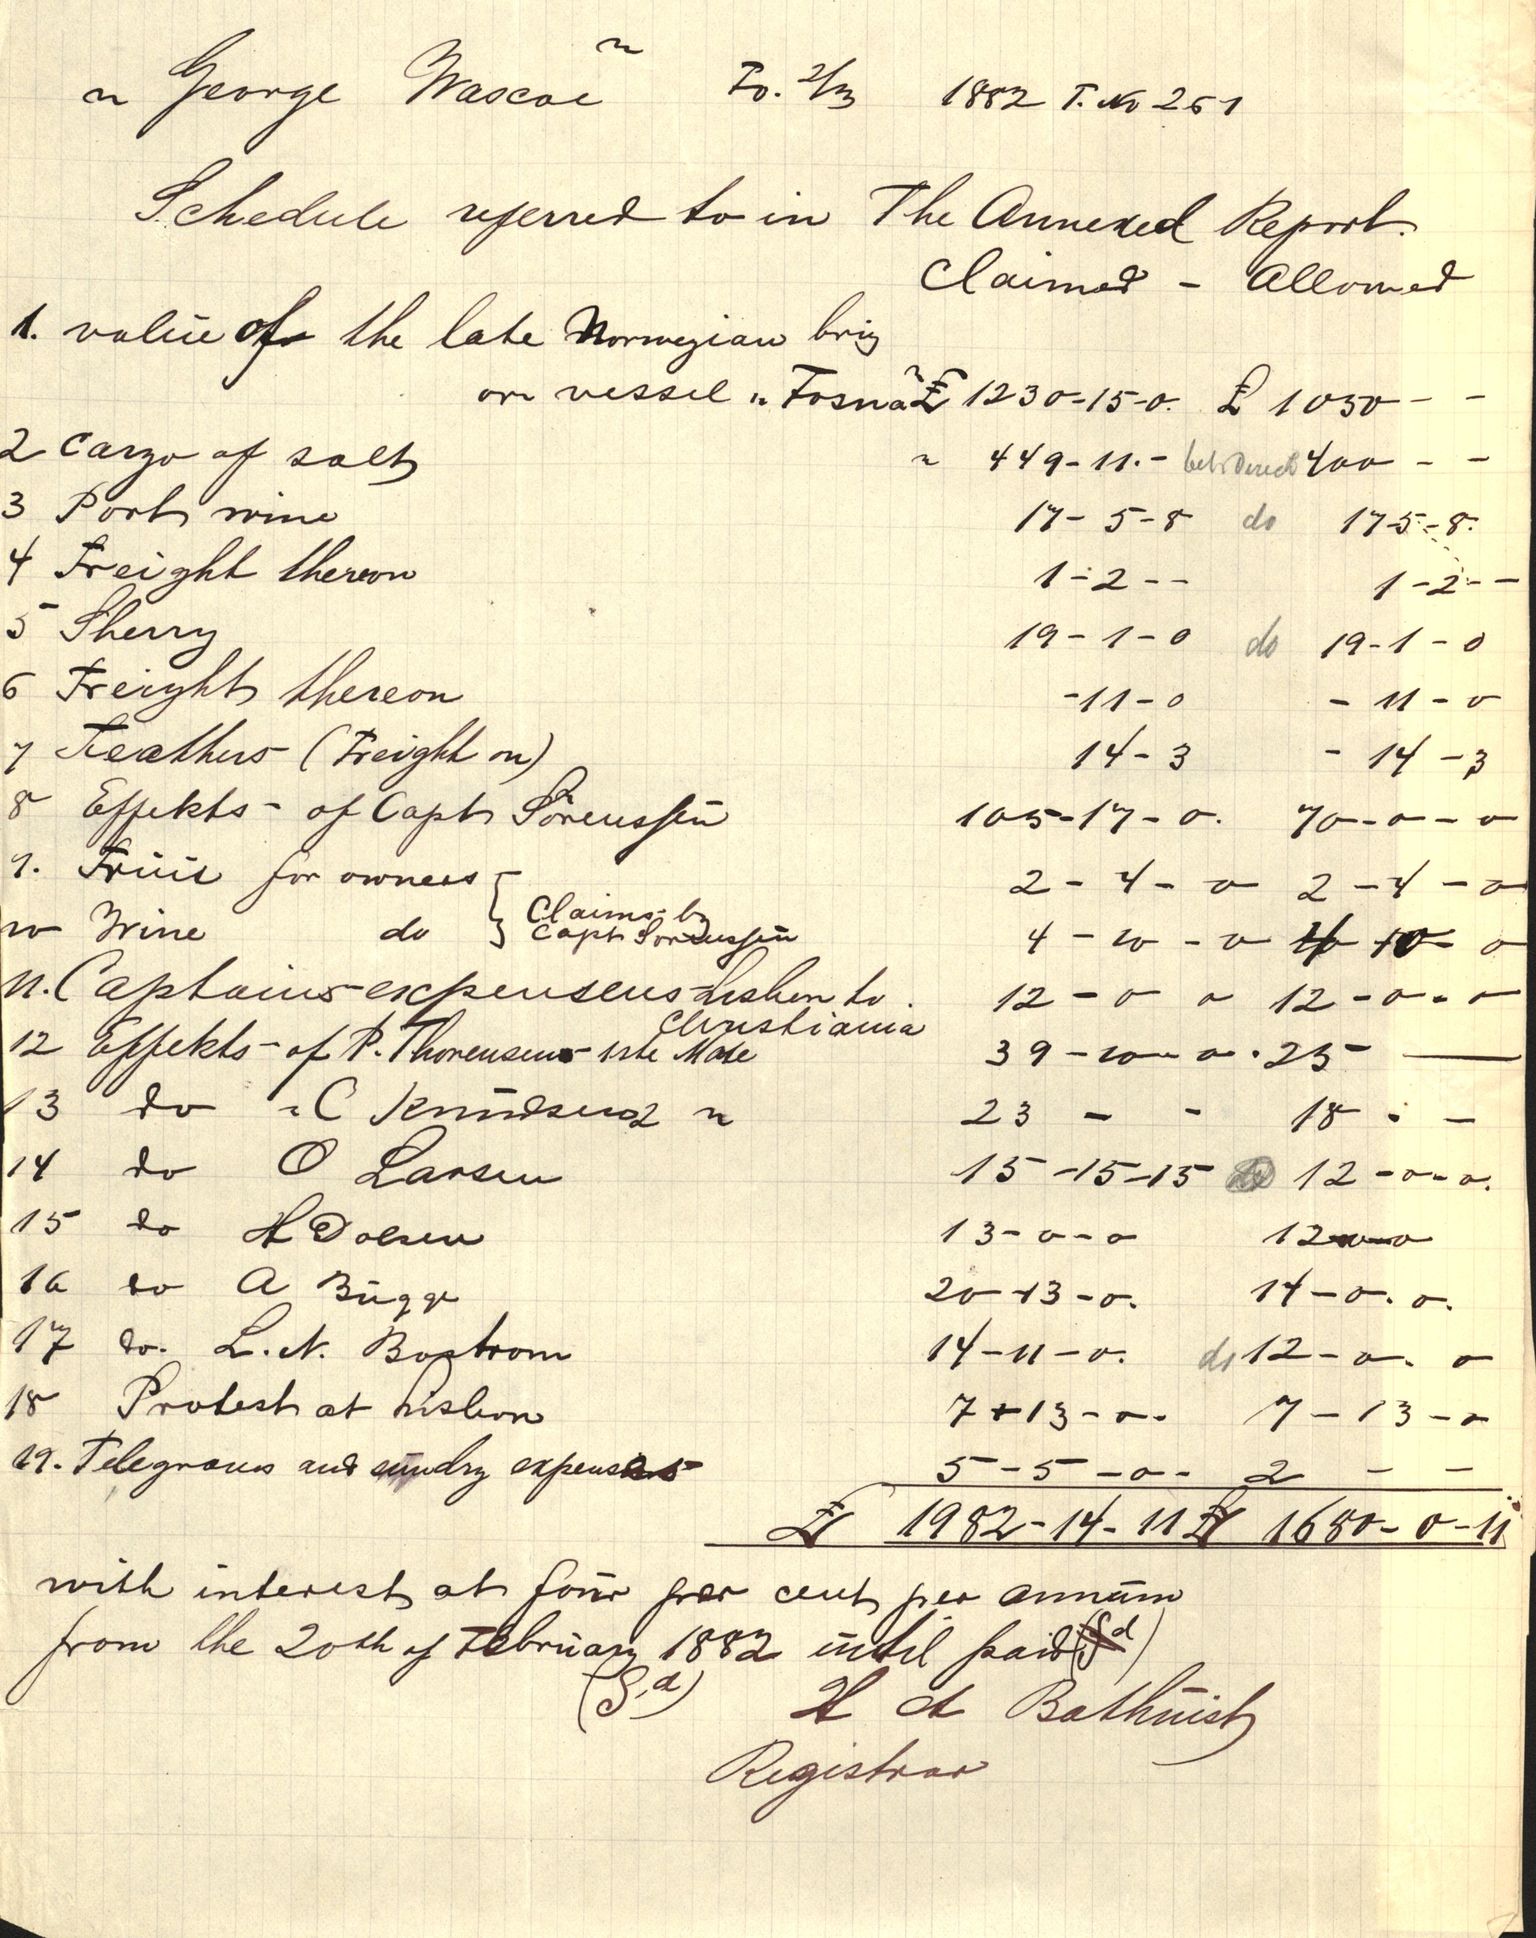 "George Wascoe" Fo. 2/3 1882 T. No 261
Schedule referred to in The Annexed Report.
Claimed - Allowed
1. value of the late Norwegian brig
or vessel "Fosna" £ 1230-15-0. £ 1050 - -
2 Cargo of salt " 449-11.- 400 - -
3 Port wine 17-5-8 do 17-5-8.
4 Freight thereon 1-2-- 1-2--
5 Sherry 19-1-0 do 19-1-0
6 Freight thereon -11-0 - 11-0
7 Feathers (Freight on) 14-3 - 14-3
8 Effekts - of Capt Sörenssen 105-17-0. 70-0-0
9. Fruit for owners 2-4-0 2-4-0
10 Wine do } Claims by Capt Sorenssen 4-10-0 4 10-0
11. Captains expensens Lisbon to Christiania 12-0 0 12-0-0
12 Effekts-of P. Thorensens 1ste Mate 39-10-0. 25 —
13 do "C Knudsen 2 " 23 - - 18 . -
14 do O Larsen 15-15-15 12-0-0.
15 do H Dolsen 13-0-0 12-0-0
16 do A Bugge 20-13-0. 14-0. 0.
17 do. L. N. Bostrom 14-11-0. do 12-0. 0
18 Protest at Lisbon 7-13-0. 7-13-0
19. Telegrams and sundry expenses 5-5-0- 2 - -
£ 1982-14-11 £ 1680-0-11
with interest at four per cent per annum
from the 20th of February 1882 until paid (Sd)
(S.d) H A Bathurst
Registrar